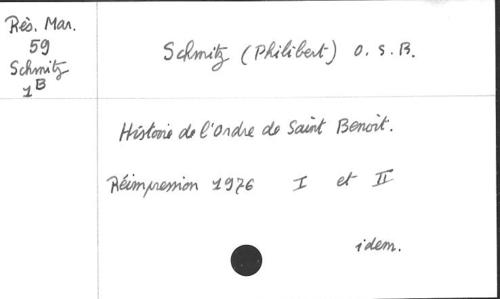 Rès. Mar.
59
Schmitz
1B
Schmitz (Philibert) O. S. B.
Histoire de l'Ordre de Saint Benoît.
Réimpression 1976 I et II
idem.